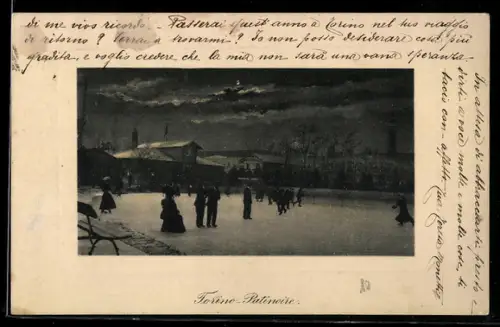 di me vivo ricordo. Passerai quest'anno a Torino nel tuo viaggio
di ritorno? Verrai a trovarmi? Io non posso desiderare cosa più
gradita, e voglio credere che la mia non sarà una vana speranza.
In attesa di abbracciarti presto e
dirti a voce molte e molte cose, ti
bacio con affetto tua
Torino-Patinoire.